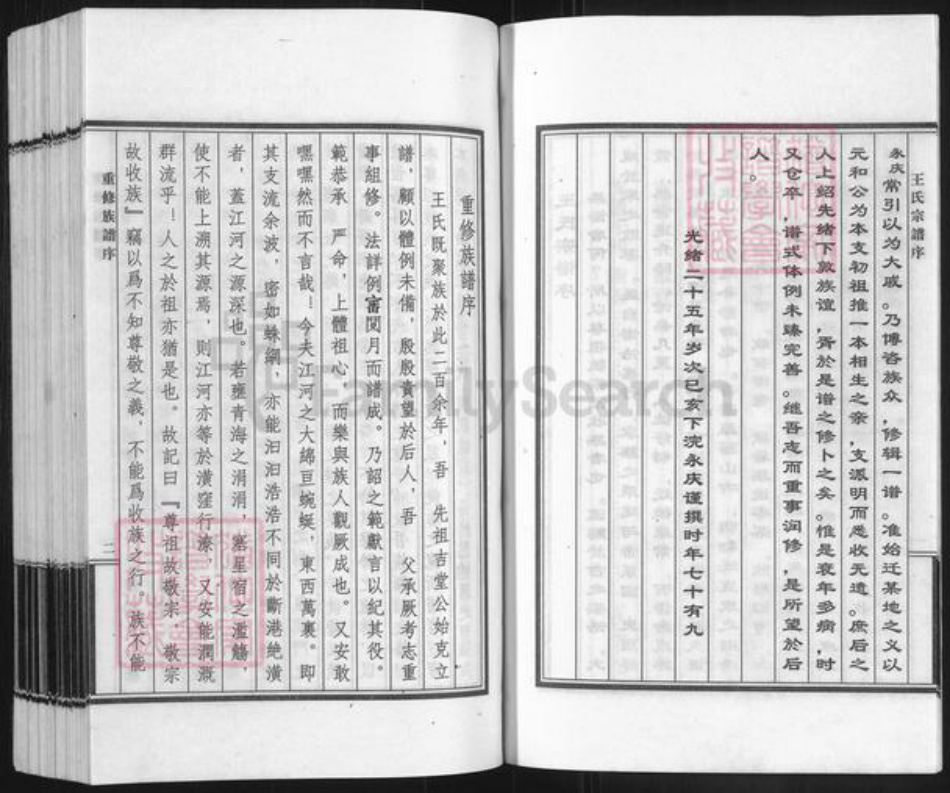 王氏宗譜序
永庆常引以为大戚。乃博咨族众，修辑一谱。准始迁某地之义以
元和公为本支初祖推一本相生之亲，支派明而悉收无遗。庶后之
人上绍先绪下敦族谊，胥於是谱之修卜之矣。惟是衰年多病，时
又仓卒，谱式体例未臻完善。继吾志而重事润修，是所望於后
人。
光绪二十五年岁次已亥下浣永庆谨撰时年七十有九
重修族譜序
王氏既聚族於此二百余年，吾　先祖吉堂公始克立
譜，顧以體例未備，殷殷責望於后人，吾　父承厥考志重
事組修。法詳例審閲月而譜成。乃詔之範獻言以紀其役。
範恭承　严命，上體祖心，而樂與族人觀厥成也。又安敢
嘿嘿然而不言哉！今夫江河之大綿亘蜿蜒，東西萬裏。即
其支流余波，密如蛛網，亦能汩汩浩浩不同於斷港绝潢
者，蓋江河之源深也。若壅青海之涓涓，塞星宿之濫觴，
使不能上溯其源焉，則江河亦等於潢窪行潦，又安能潤溉
群流乎！人之於祖亦猶是也。故記曰『尊祖故敬宗，敬宗
故收族』竊以爲不知尊敬之義，不能爲收族之行。族不能
重修族譜序
二
FamilySearch